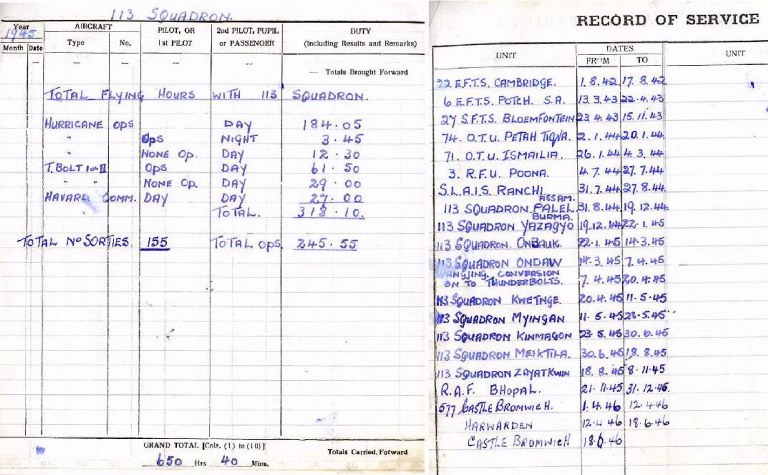 113 SQUADRON.
Year 1945 AIRCRAFT PILOT, OR 1ST PILOT 2ND PILOT, PUPIL OR PASSENGER DUTY (Including Results and Remarks)
Month Date Type No.
— — — — — — Totals Brought Forward
TOTAL FLYING HOURS WITH 113 SQUADRON.
HURRICANE OPS DAY 184.05
" OPS NIGHT 3.45
" NONE OP. DAY 12.30
T.BOLT I or II OPS DAY 61.50
" " NONE OP. DAY 29.00
HAVARD COMM. DAY DAY 27.00
TOTAL. 318.10.
TOTAL NO SORTIES. 155 TOTAL OPS. 245.55
GRAND TOTAL [Cols. (1) to (10)]
650 Hrs 40 Mins.
Totals Carried Forward
RECORD OF SERVICE
UNIT DATES UNIT
FROM TO
22 E.F.T.S. CAMBRIDGE. 1.8.42 17.8.42
6 E.F.T.S. POTCH. S.A. 13.3.43 22.4.43
27 S.F.T.S. BLOEMFONTEIN 23.4.43 15.11.43
74. O.T.U. PETAH TIQNA. 2.1.44 20.1.44
71. O.T.U. ISMAILIA. 26.1.44 4.3.44
3. R.F.U. POONA. 4.7.44 27.7.44
S.L.A.I.S. RANCHI 31.7.44 27.8.44
113 SQUADRON. PALEL ASSAM. 31.8.44 19.12.44
113 SQUADRON YAZAGYO BURMA. 19.12.44 22.1.45
113 SQUADRON. ONBAUK. 22.1.45 14.3.45
113 SQUADRON ONDAW 14.3.45 7.4.45
CONVERSION ON TO THUNDERBOLTS. 7.4.45 20.4.45
113 SQUADRON KWETNGE. 20.4.45 11.5.45
113 SQUADRON MYINGAN 11.5.45 23.5.45
113 SQUADRON KINMAGON 23.5.45 30.6.45
113 SQUADRON MEIKTILA. 30.6.45 18.8.45
113 SQUADRON ZAYATKWIN 18.8.45 8.11.45
R.A.F. BHOPAL. 21.11.45 31.12.45
577 CASTLE BROMWICH. 1.4.46 12.4.46
HARWARDEN 12.4.46 18.6.46
CASTLE BROMWICH 18.6.46